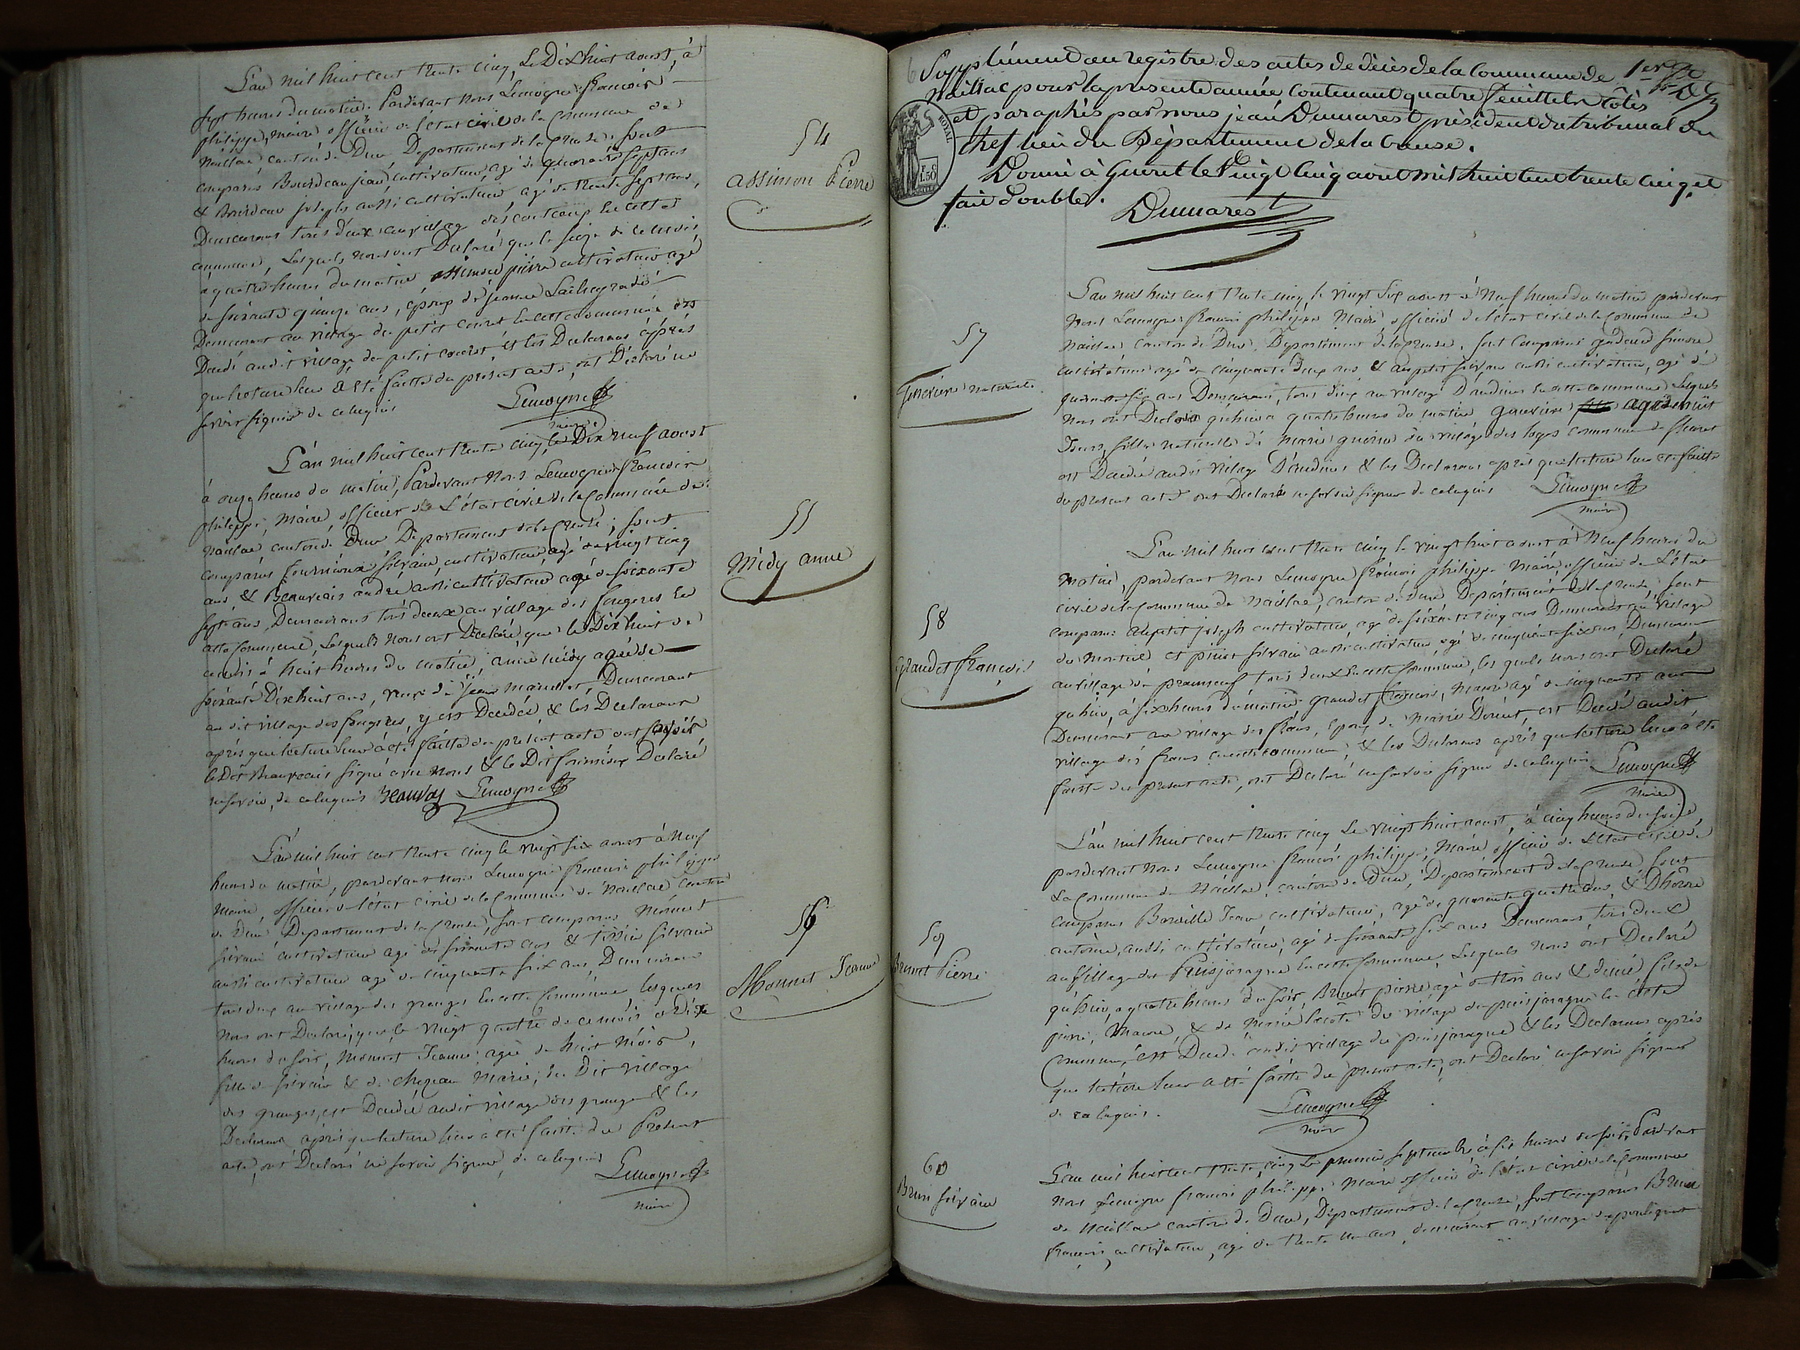 L'an mil huit cent trente cinq, Le Dix huit aoust, à
sept heures du matin, Pardevant nous Lemoyne françois
philippe, maire officier de l'état civil de la commune de
naillac canton de Dun Departement de la Creuse, sont
comparus Bourdeau jean, cultivateur, agé de quarante sept ans
& Bourdeau joseph aussi cultivateur agé de trente sept ans,
Demeurans tous deux au village en cette
commune, Lesquels nous ont Declaré que le seize de ce mois
a quatre heures du matin assimon pierre cultivateur agé
de soixante quinze ans, epoux de jeanne
Demeurant au village du petit couret en cette commune est
Decédé audit village du petit couret, et les Declarans après
que lecture leur a été faitte du present acte, ont Déclaré ne
savoir signer de ce enquis Lemoyne
maire
54
assimon Pierre
L'an mil huit cent trente cinq, le Dix neuf aoust
à onze heures du matin, Pardevant nous Lemoyne françois
philippe, Maire, officier de L'état civil de la Commune de
naillac canton de Dun Departement de la Creuse, sont
comparus fournioux silvain, cultivateur agé de vingt cinq
ans, & Beauvais andré aussi cultivateur agé de soixante
sept ans, Demeurans tous deux au village des fougeres en
cette Commune, Lesquels nous ont Declaré que le Dix huit de
ce mois à huit heures du matin, anne midy agée de
soixante Dix huit ans, veuve de jean, Demeurant
au dit village des fougeres, y est Decédée, & les Declarans
après que lecture leur a été faitte du present acte ont savoir
le Dit Beauvais signé avec nous & le Dit fournioux Declaré
ne savoir, de ce enquis Beauvais Lemoyne
55
Midy anne
L'an mil huit cent trente cinq le vingt six aoust à neuf
heures du matin, pardevant nous Lemoyne francois philippe
Maire, officier de l'état civil de la commune de Naillac canton
de Dun, Departement de la Creuse, sont comparus Monnet
silvain cultivateur agé de soixante ans & silvain
aussi cultivateur agé de cinquante six ans, Demeurans
tous deux au village des granges en cette commune lesquels
nous ont Declaré, que le vingt quatre de ce mois a Dix
heures du soir, Monnet Jeanne, agée de huit mois,
fille de silvain & de Marie, du Dit village
des granges, est Decédée audit village des granges & les
Declarans après que lecture leur a été faitte du Present
acte, ont Declaré ne savoir signer, de ce enquis
Lemoyne
maire
56
Monnet Jeanne
Supplément au registre des actes de décès de la Commune de 1er
Naillac pour la présente année contenant quatre feuillets Côtés
et paraphés par nous jean Dumarest président du tribunal du
Chef lieu du Département de la Creuse.
Donné à Gueret le Vingt Cinq aout mil huit cent trente cinq et
fait double.
Dumarest
ROYAL
57
naturelle
L'an mil huit cent trente cinq, le vingt six aoust à Neuf heures du matin pardevant
nous Lemoyne francois philippe Maire officier de l'état civil de la commune de
Naillac canton de Dun Departement de la Creuse, sont comparus
cultivateur agé de cinquante Deux ans & aupetit silvain aussi cultivateur, agé de
quarante six ans Demeurans, tous deux au village D'audines en cette commune, Lesquels
nous ont Declaré qu'hier a quatre heures du matin agée de huit
Jours, fille naturelle de marie du village des loges commune de fleurat
est Decédée audit village D'audines & les Declarans après que lecture leur a été faitte
du present acte ont Declaré ne savoir signer de ce enquis Lemoyne
maire
58
Grandet françois
L'an mil huit cent trente cinq le vingt huit aoust à Neuf heures du
Matin, pardevant nous Lemoyne francois philippe Maire, officier de L'état
civil de la commune de Naillac, canton de Dun, Departement de la Creuse, sont
comparus aupetit joseph cultivateur, agé de soixante cinq ans Demeurant au village
du et silvain aussi cultivateur, agé de cinquante six ans, Demeurant
au village de tous deux en cette commune, lesquels nous ont Declaré
qu'hier, a six heures du matin grandet francois, Macon agé de cinquante ans
Demeurant au village des, epoux de Marie, est Decédé audit
village des en cette commune & les Declarans après que lecture leur a été
faitte du present acte, ont Declaré ne savoir signer de ce enquis Lemoyne
maire
59
Brunet Pierre
L'an mil huit cent trente cinq Le vingt huit aoust, à cinq heures du soir,
pardevant nous Lemoyne francois philippe, Maire officier de L'état civil de
La commune de Naillac, canton de Dun, Departement de la Creuse, sont
comparus Jean cultivateur, agé de quarante quatre ans, &
antoine, aussi cultivateur, agé de soixante six ans Demeurans tous deux
au village de Puisjaragne en cette commune, Lesquels nous ont Declaré
qu'hier, a quatre heures du soir, Brunet pierre agé de trois ans & demi fils de
pierre, Macon, & de Marie du village de puisjaragne en cette
commune, est Decédé audit village de puisjaragne & les Declarans après
que lecture leur a été faitte du present acte, ont Declaré ne savoir signer
de ce enquis.
Lemoyne
maire
60
Brun silvain
L'an mil huit cent trente cinq Le premier septembre à six heures du soir, Pardevant
nous Lemoyne francois philippe Maire officier de l'état civil de la commune
de Naillac canton de Dun, Departement de la Creuse, sont comparus Brun
francois cultivateur, agé de trente un ans, demeurant au village de